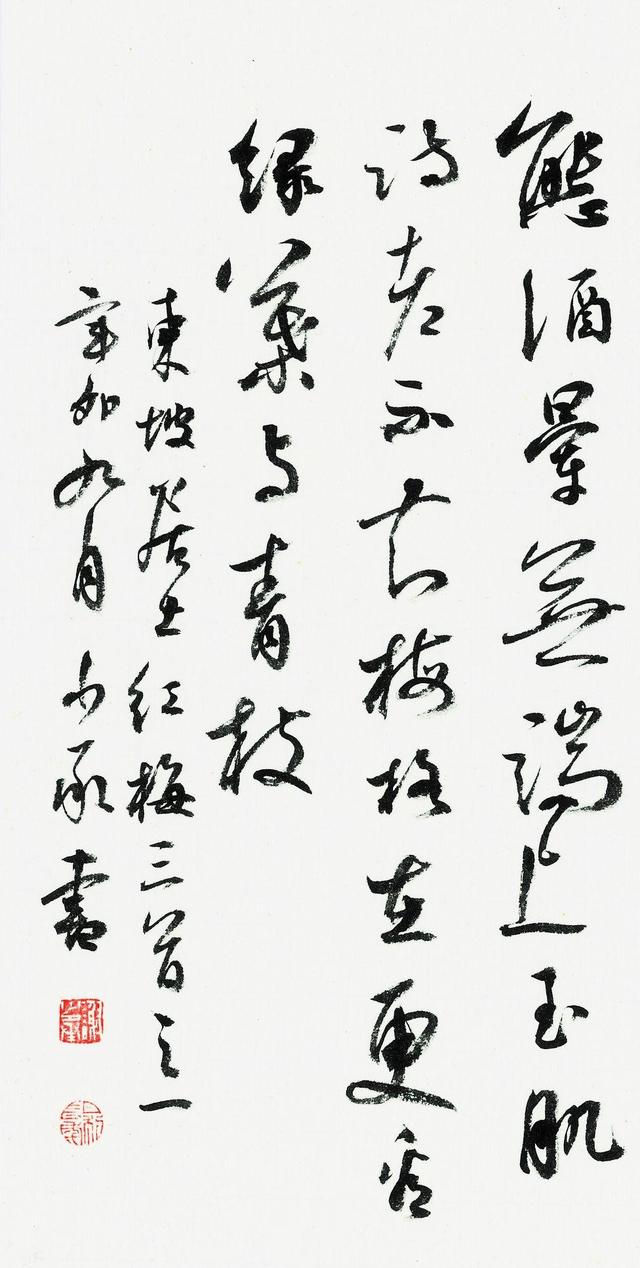 態酒暈無端上玉肌
詩老不知梅格在更看
綠葉與青枝
東坡居士紅梅三首之一
辛卯九月少承書